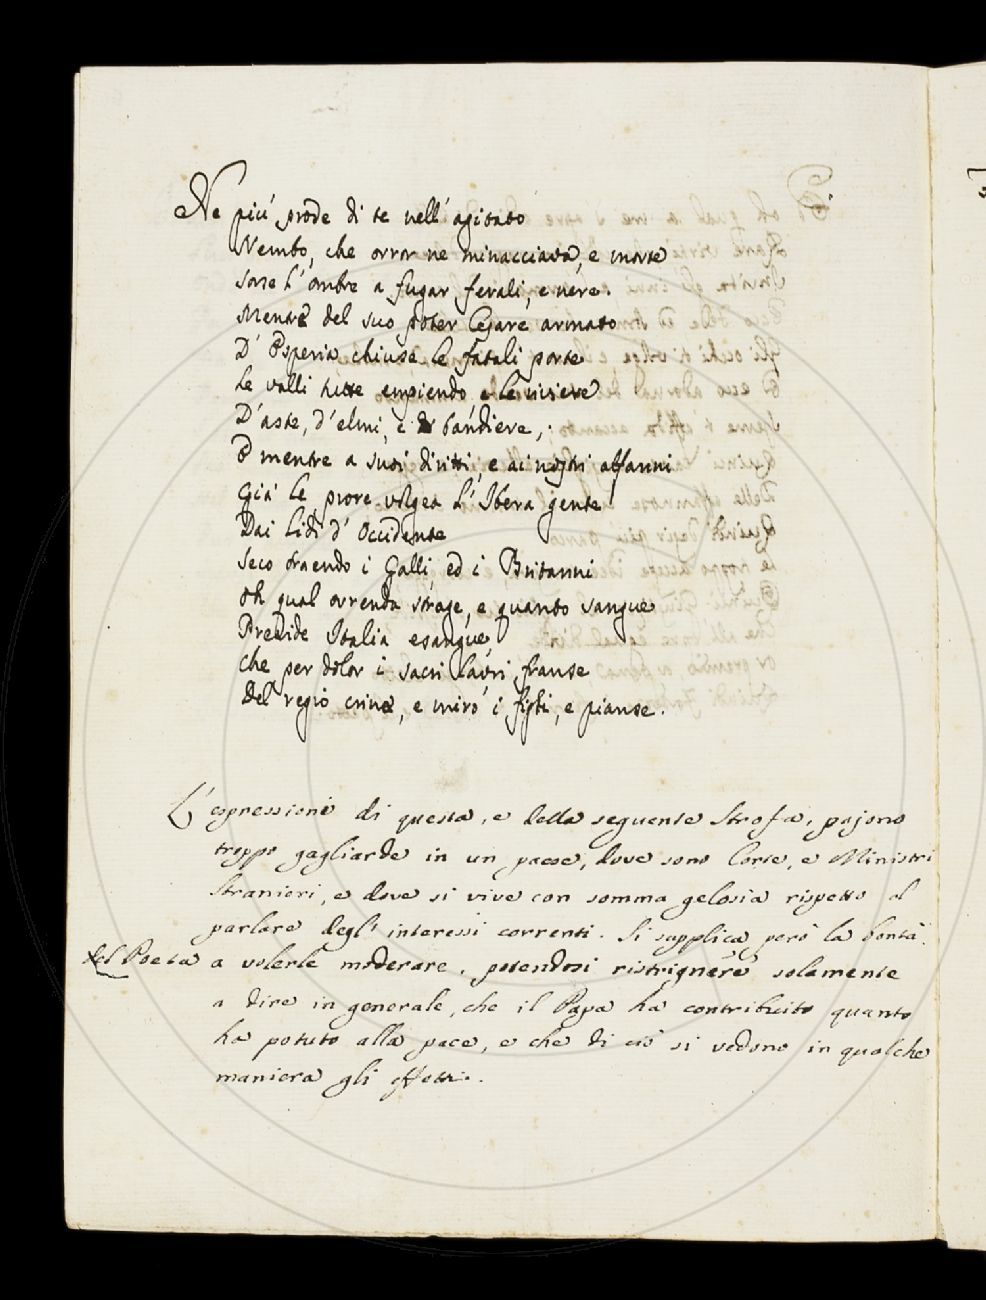 Ne più prode di te nell'agitato
Nembo, che orror ne minacciava, e morte
Sorse l'ombre a fugar ferali, e nere.
Mentre del suo poter Cesare armato
D'Esperia chiuse le fatali porte
Le valli tutte empiendo, e le riviere
D'aste, d'elmi, e di bandiere,
E mentre a suoi diritti, e ai nostri affanni
Già le prore volgea l'Ibera gente
Dai lidi d'Occidente
Seco traendo i Galli, ed i Britanni
Oh qual orrenda strage, e quanto sangue
Previde Italia esangue
Che per dolor i sacri lauri franse
Del regio crine, e mirò i figli, e pianse.
L'espressioni di questa, e della seguente Strofa, pajono
troppo gagliarde in un paese, dove sono Corte, e Ministri
stranieri, e dove si vive con somma gelosia rispetto al
parlare degl'interessi correnti. Si supplica però la bontà
del Poeta a volerle moderare, potendosi ristrignere solamente
a dire in generale, che il Papa ha contribuito quanto
ha potuto alla pace, e che di ciò si vedono in qualche
maniera gli effetti.